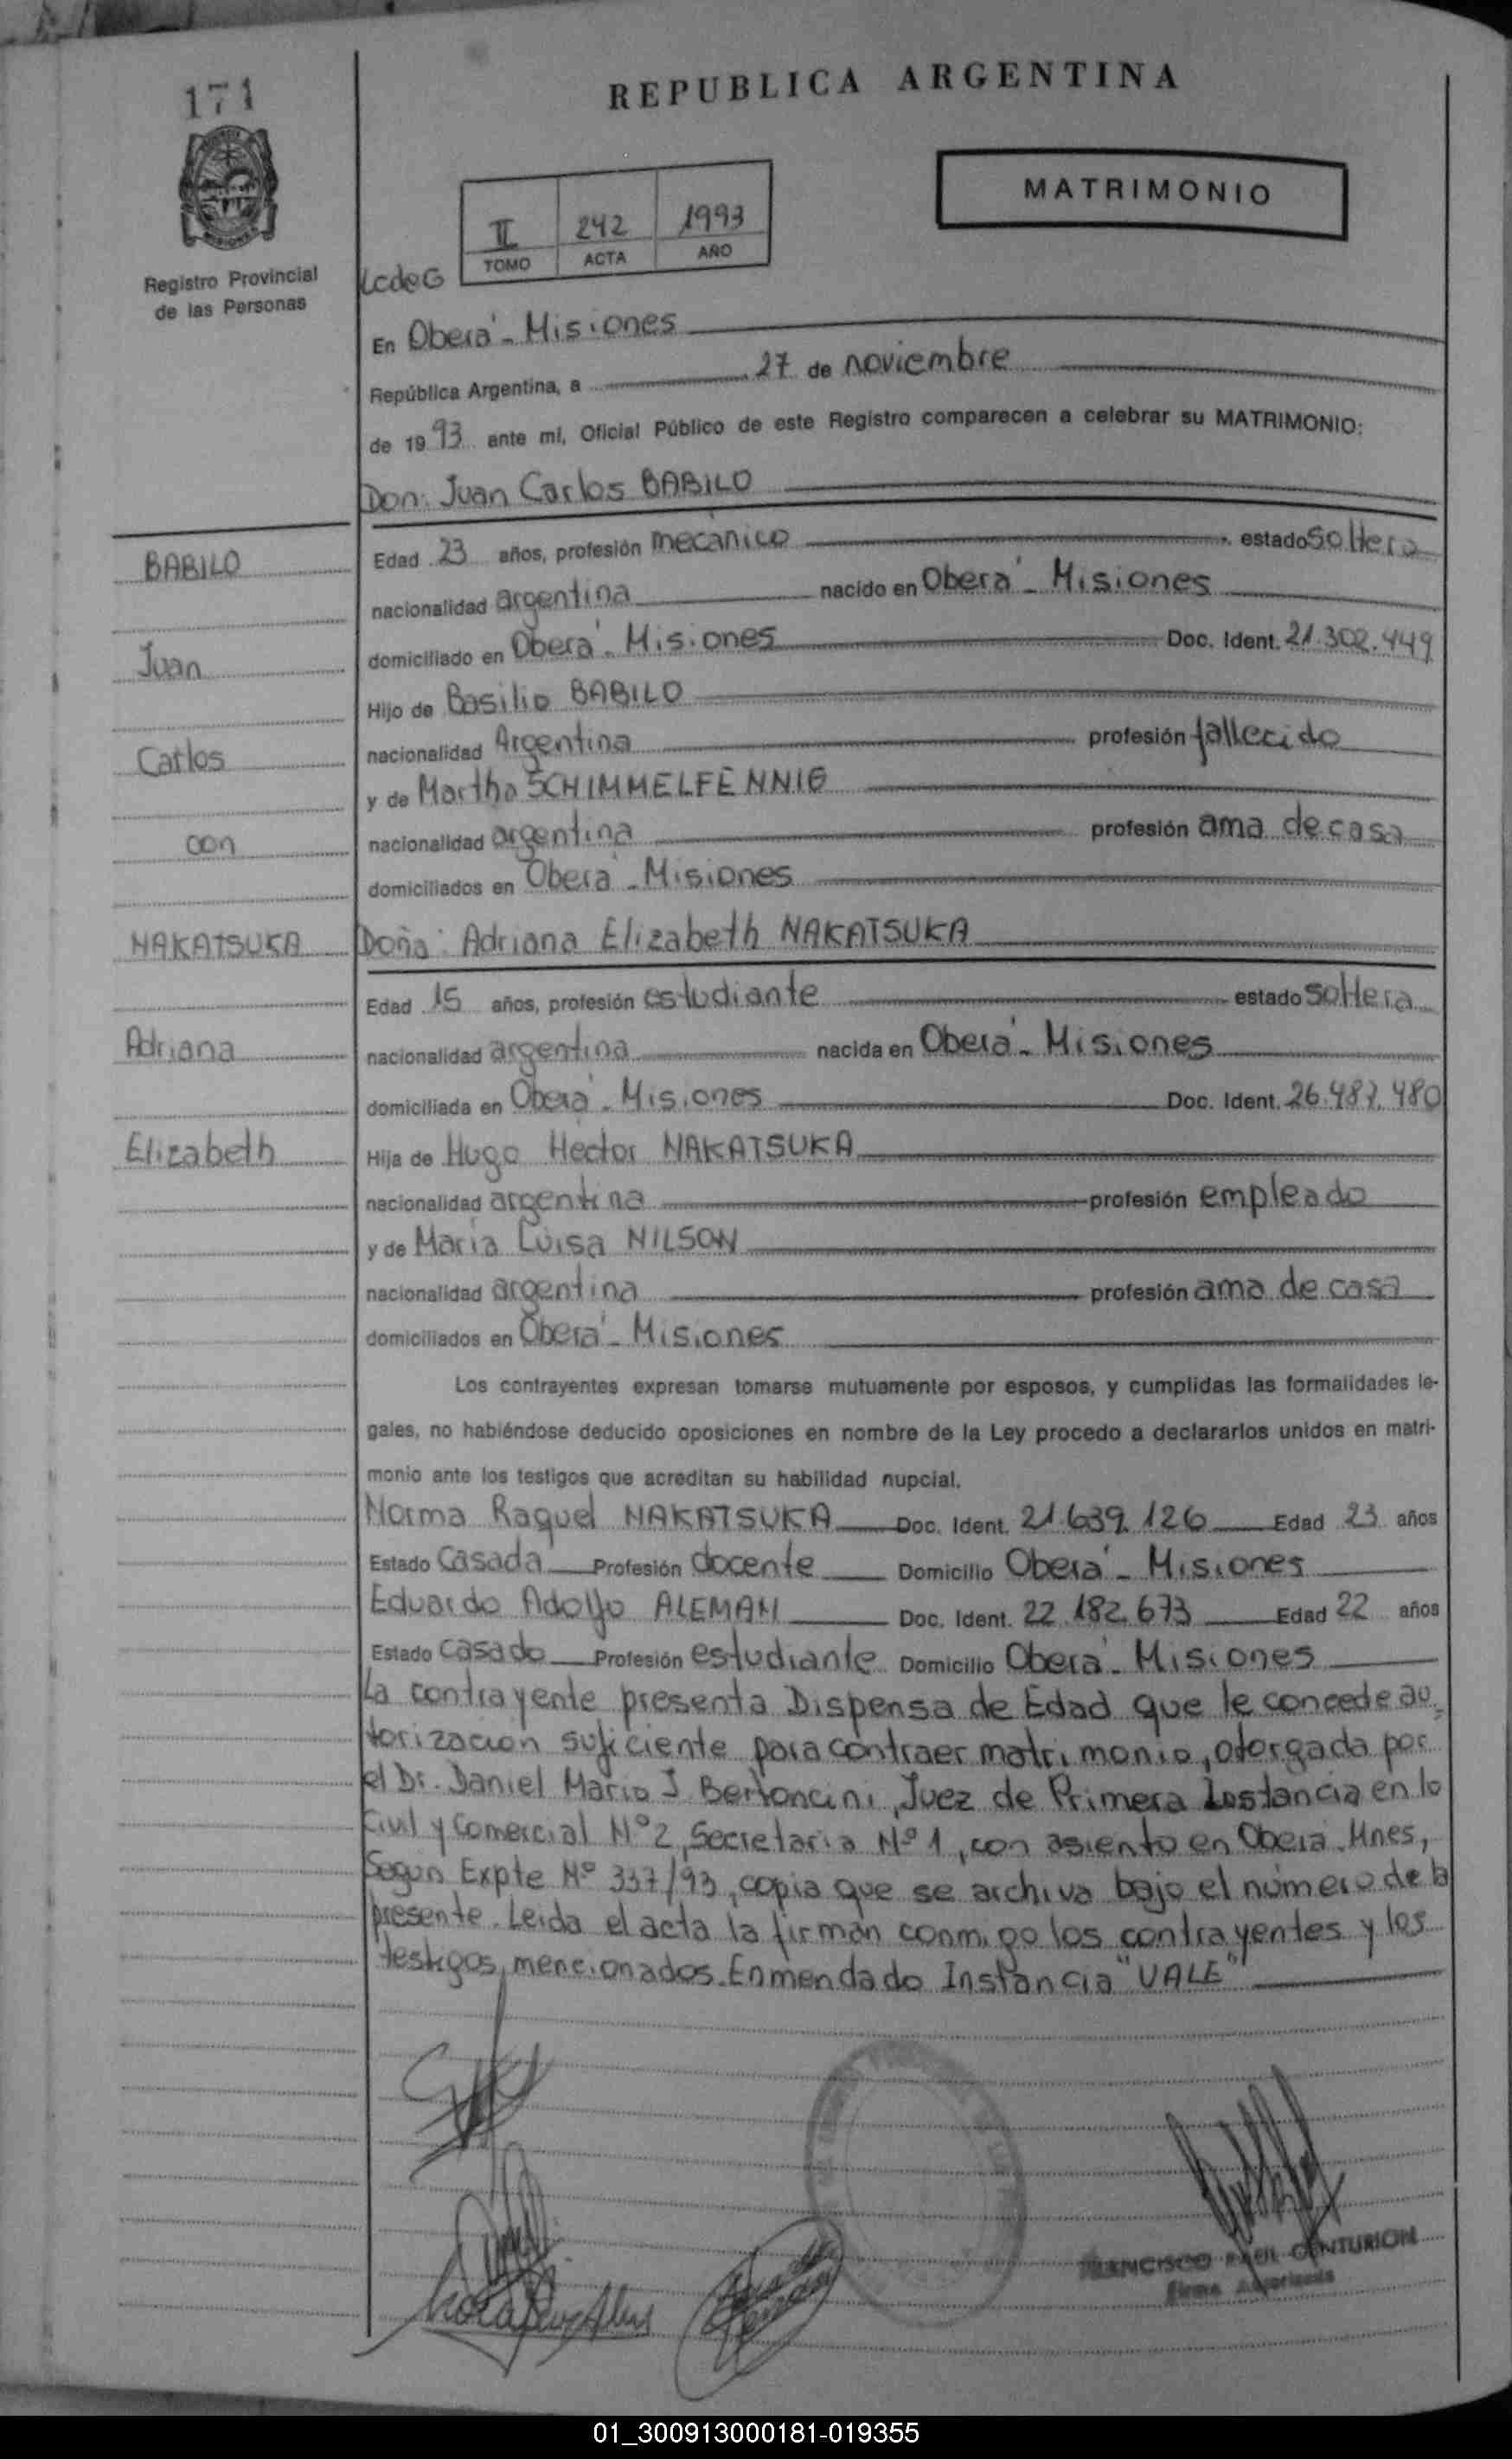 171
REPUBLICA ARGENTINA
MATRIMONIO
II 242 1993
TOMO ACTA AÑO
Registro Provincial
de las Personas
LcdeG
En Oberá - Misiones
República Argentina, a 27 de noviembre
de 1993 ante mí, Oficial Público de este Registro comparecen a celebrar su MATRIMONIO:
Don: Juan Carlos BABILO
BABILO
Edad 23 años, profesión mecánico estado soltero
nacionalidad argentina nacido en Oberá - Misiones
Juan
domiciliado en Oberá - Misiones Doc. Ident. 21.302.449
Hijo de Basilio BABILO
Carlos
nacionalidad Argentina profesión fallecido
y de Martha SCHIMMELFENNIG
con
nacionalidad argentina profesión ama de casa
domiciliados en Oberá - Misiones
NAKATSUKA
Doña: Adriana Elizabeth NAKATSUKA
Edad 15 años, profesión estudiante estado soltera
Adriana
nacionalidad argentina nacida en Oberá - Misiones
domiciliada en Oberá - Misiones Doc. Ident. 26.487.480
Elizabeth
Hija de Hugo Héctor NAKATSUKA
nacionalidad argentina profesión empleado
y de María Luisa NILSON
nacionalidad argentina profesión ama de casa
domiciliados en Oberá - Misiones
Los contrayentes expresan tomarse mutuamente por esposos, y cumplidas las formalidades le-
gales, no habiéndose deducido oposiciones en nombre de la Ley procedo a declararlos unidos en matri-
monio ante los testigos que acreditan su habilidad nupcial.
Norma Raquel NAKATSUKA Doc. Ident. 21.639.126 Edad 23 años
Estado Casada Profesión docente Domicilio Oberá - Misiones
Eduardo Adolfo ALEMAN Doc. Ident. 22.182.673 Edad 22 años
Estado Casado Profesión estudiante Domicilio Oberá - Misiones
La contrayente presenta Dispensa de Edad que le concede au-
torización suficiente para contraer matrimonio, otorgada por
el Dr. Daniel Mario J Bertoncini, Juez de Primera Instancia en lo
Civil y Comercial Nº 2, Secretaria Nº 1, con asiento en Oberá. Mnes,
Segun Expte Nº 337/93, copia que se archiva bajo el número de la
presente. Leida el acta la firman conmigo los contrayentes y los
testigos mencionados. Enmendado Instancia "VALE"
FRANCISCO RAUL CENTURION
Firma Autorizada
01_300913000181-019355